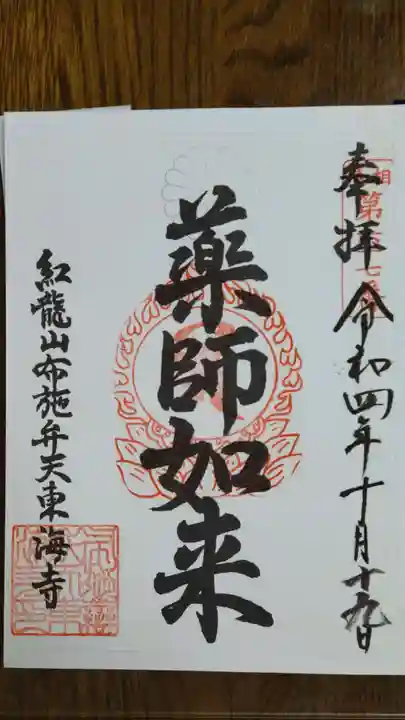 奉拝 令和四年十月十九日
薬師如来
紅龍山布施弁天東海寺